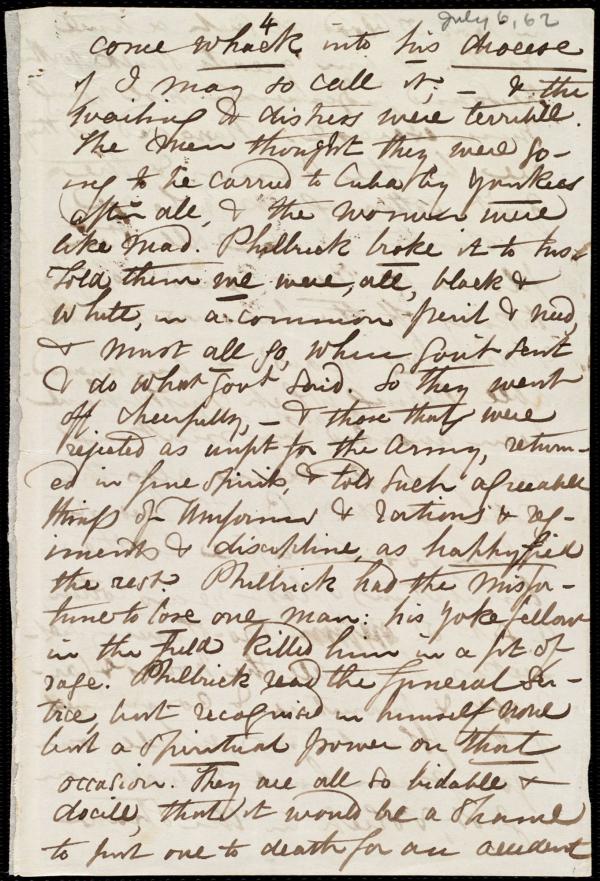 July 6, 62
4
come whack into his diocese
if I may so call it, — & the
wailing & distress were terrible.
The men thought they were go-
ing to be carried to Cuba by Yankees
after all, & the women were
like mad. Philbrick broke it to his
told them we were, all, black &
white, in a common peril & need,
& must all go, where Govt sent
& do what Govt said. So they went
off cheerfully, — & those that were
rejected as unfit for the Army, return-
ed in fine spirits, & told such agreeable
things of Uniforms & rations & reg-
iments & discipline, as happyfied
the rest. Philbrick had the misfor-
tune to lose one man: his yoke fellow
in the Field killed him in a fit of
rage. Philbrick read the funeral Ser-
vice, but recognised in himself none
but a spiritual power on that
occasion. They are all so bidable &
docile, that it would be a shame
to put one to death for an accident